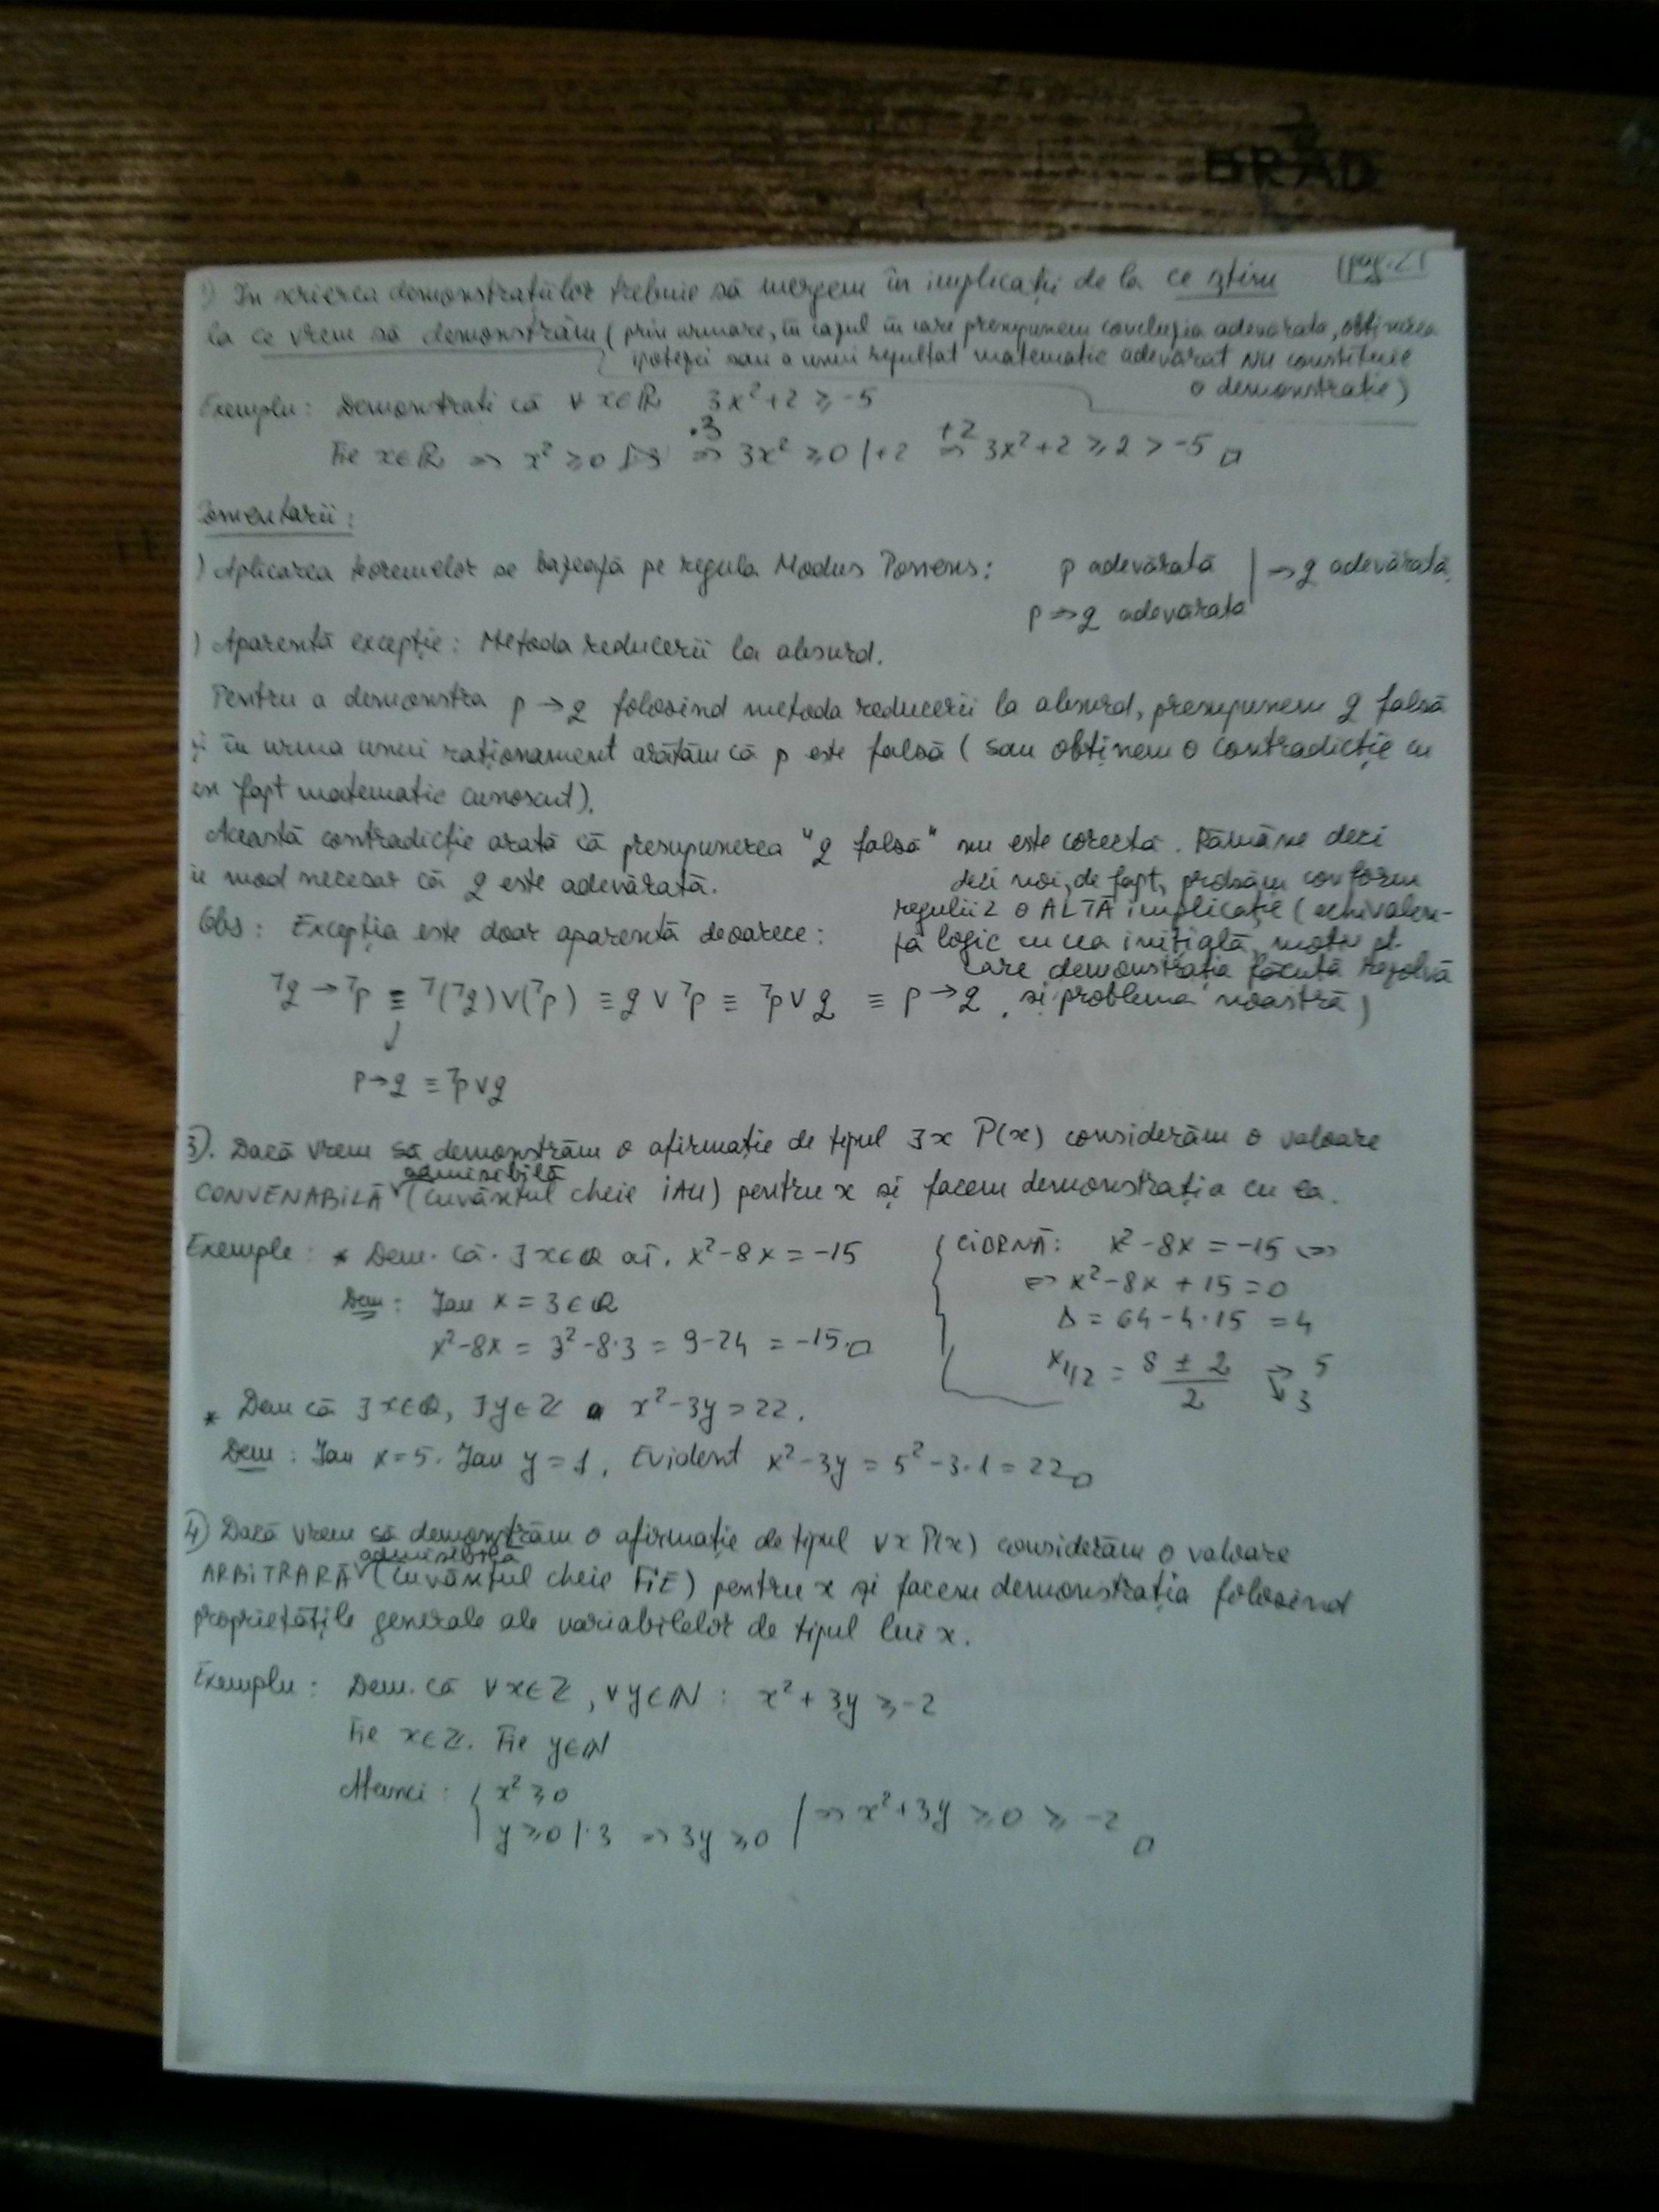 BRAD
(pag. 2)
2) In scrierea demonstrațiilor trebuie să mergem în implicații de la ce știm
la ce vrem să demonstrăm (prin urmare, în cazul în care presupunem concluzia adevărată, obținerea
ipotezei sau a unui rezultat matematic adevărat NU constituie
o demonstrație)
Exemplu: Demonstrați că ∀ x∈ℝ 3x²+2 ≥ -5
Fie x∈ℝ ⇒ x² ≥0 ⇒ (·3) 3x² ≥0 |+2 ⇒ (+2) 3x²+2 ≥ 2 > -5 □
Comentarii:
) Aplicarea teoremelor se bazează pe regula Modus Ponens: p adevărată | ⇒ q adevărată.
p→q adevărată
) Aparentă excepție: Metoda reducerii la absurd.
Pentru a demonstra p→q folosind metoda reducerii la absurd, presupunem q falsă
și în urma unui raționament arătăm că p este falsă (sau obținem o contradicție cu
un fapt matematic cunoscut).
Această contradicție arată că presupunerea "q falsă" nu este corectă. Rămâne deci
în mod necesar că q este adevărată.
deci noi, de fapt, probăm conform
regulii 2 o ALTĂ implicație (echivalen-
Obs: Excepția este doar aparentă deoarece:
tă logic cu cea inițială, motiv pt.
care demonstrația făcută rezolvă
¬q → ¬p ≡ ¬(¬q)∨(¬p) ≡ q ∨ ¬p ≡ ¬p∨q ≡ p→q. și problema noastră)
↓
p→q ≡ ¬p∨q
3). Dacă vrem să demonstrăm o afirmație de tipul ∃x P(x) considerăm o valoare
admisibilă
CONVENABILĂ (cuvântul cheie iAU) pentru x și facem demonstrația cu ea.
Exemple: * Dem. că. ∃ x∈ℚ aî. x²-8x = -15
Dem: Iau x = 3 ∈ ℚ
x²-8x = 3²-8·3 = 9-24 = -15.□
CIORNĂ: x²-8x = -15 ⇔
⇔ x²-8x + 15 = 0
Δ = 64-4·15 = 4
x1/2 = 8 ± 2 / 2 → 5
↓ 3
* Dem că ∃ x∈ℚ, ∃y∈ℤ x²-3y = 22.
Dem: Iau x=5. Iau y=1. Evident x²-3y = 5²-3·1 = 22□
4) Dacă vrem să demonstrăm o afirmație de tipul ∀x P(x) considerăm o valoare
admisibilă
ARBITRARĂ (cuvântul cheie FiE) pentru x și facem demonstrația folosind
proprietățile generale ale variabilelor de tipul lui x.
Exemplu: Dem. că ∀x∈ℤ, ∀y∈ℕ: x²+3y ≥ -2
Fie x∈ℤ. Fie y∈ℕ
Atunci: { x² ≥0
y ≥0 |·3 ⇒ 3y ≥0 | ⇒ x²+3y ≥0 ≥ -2 □